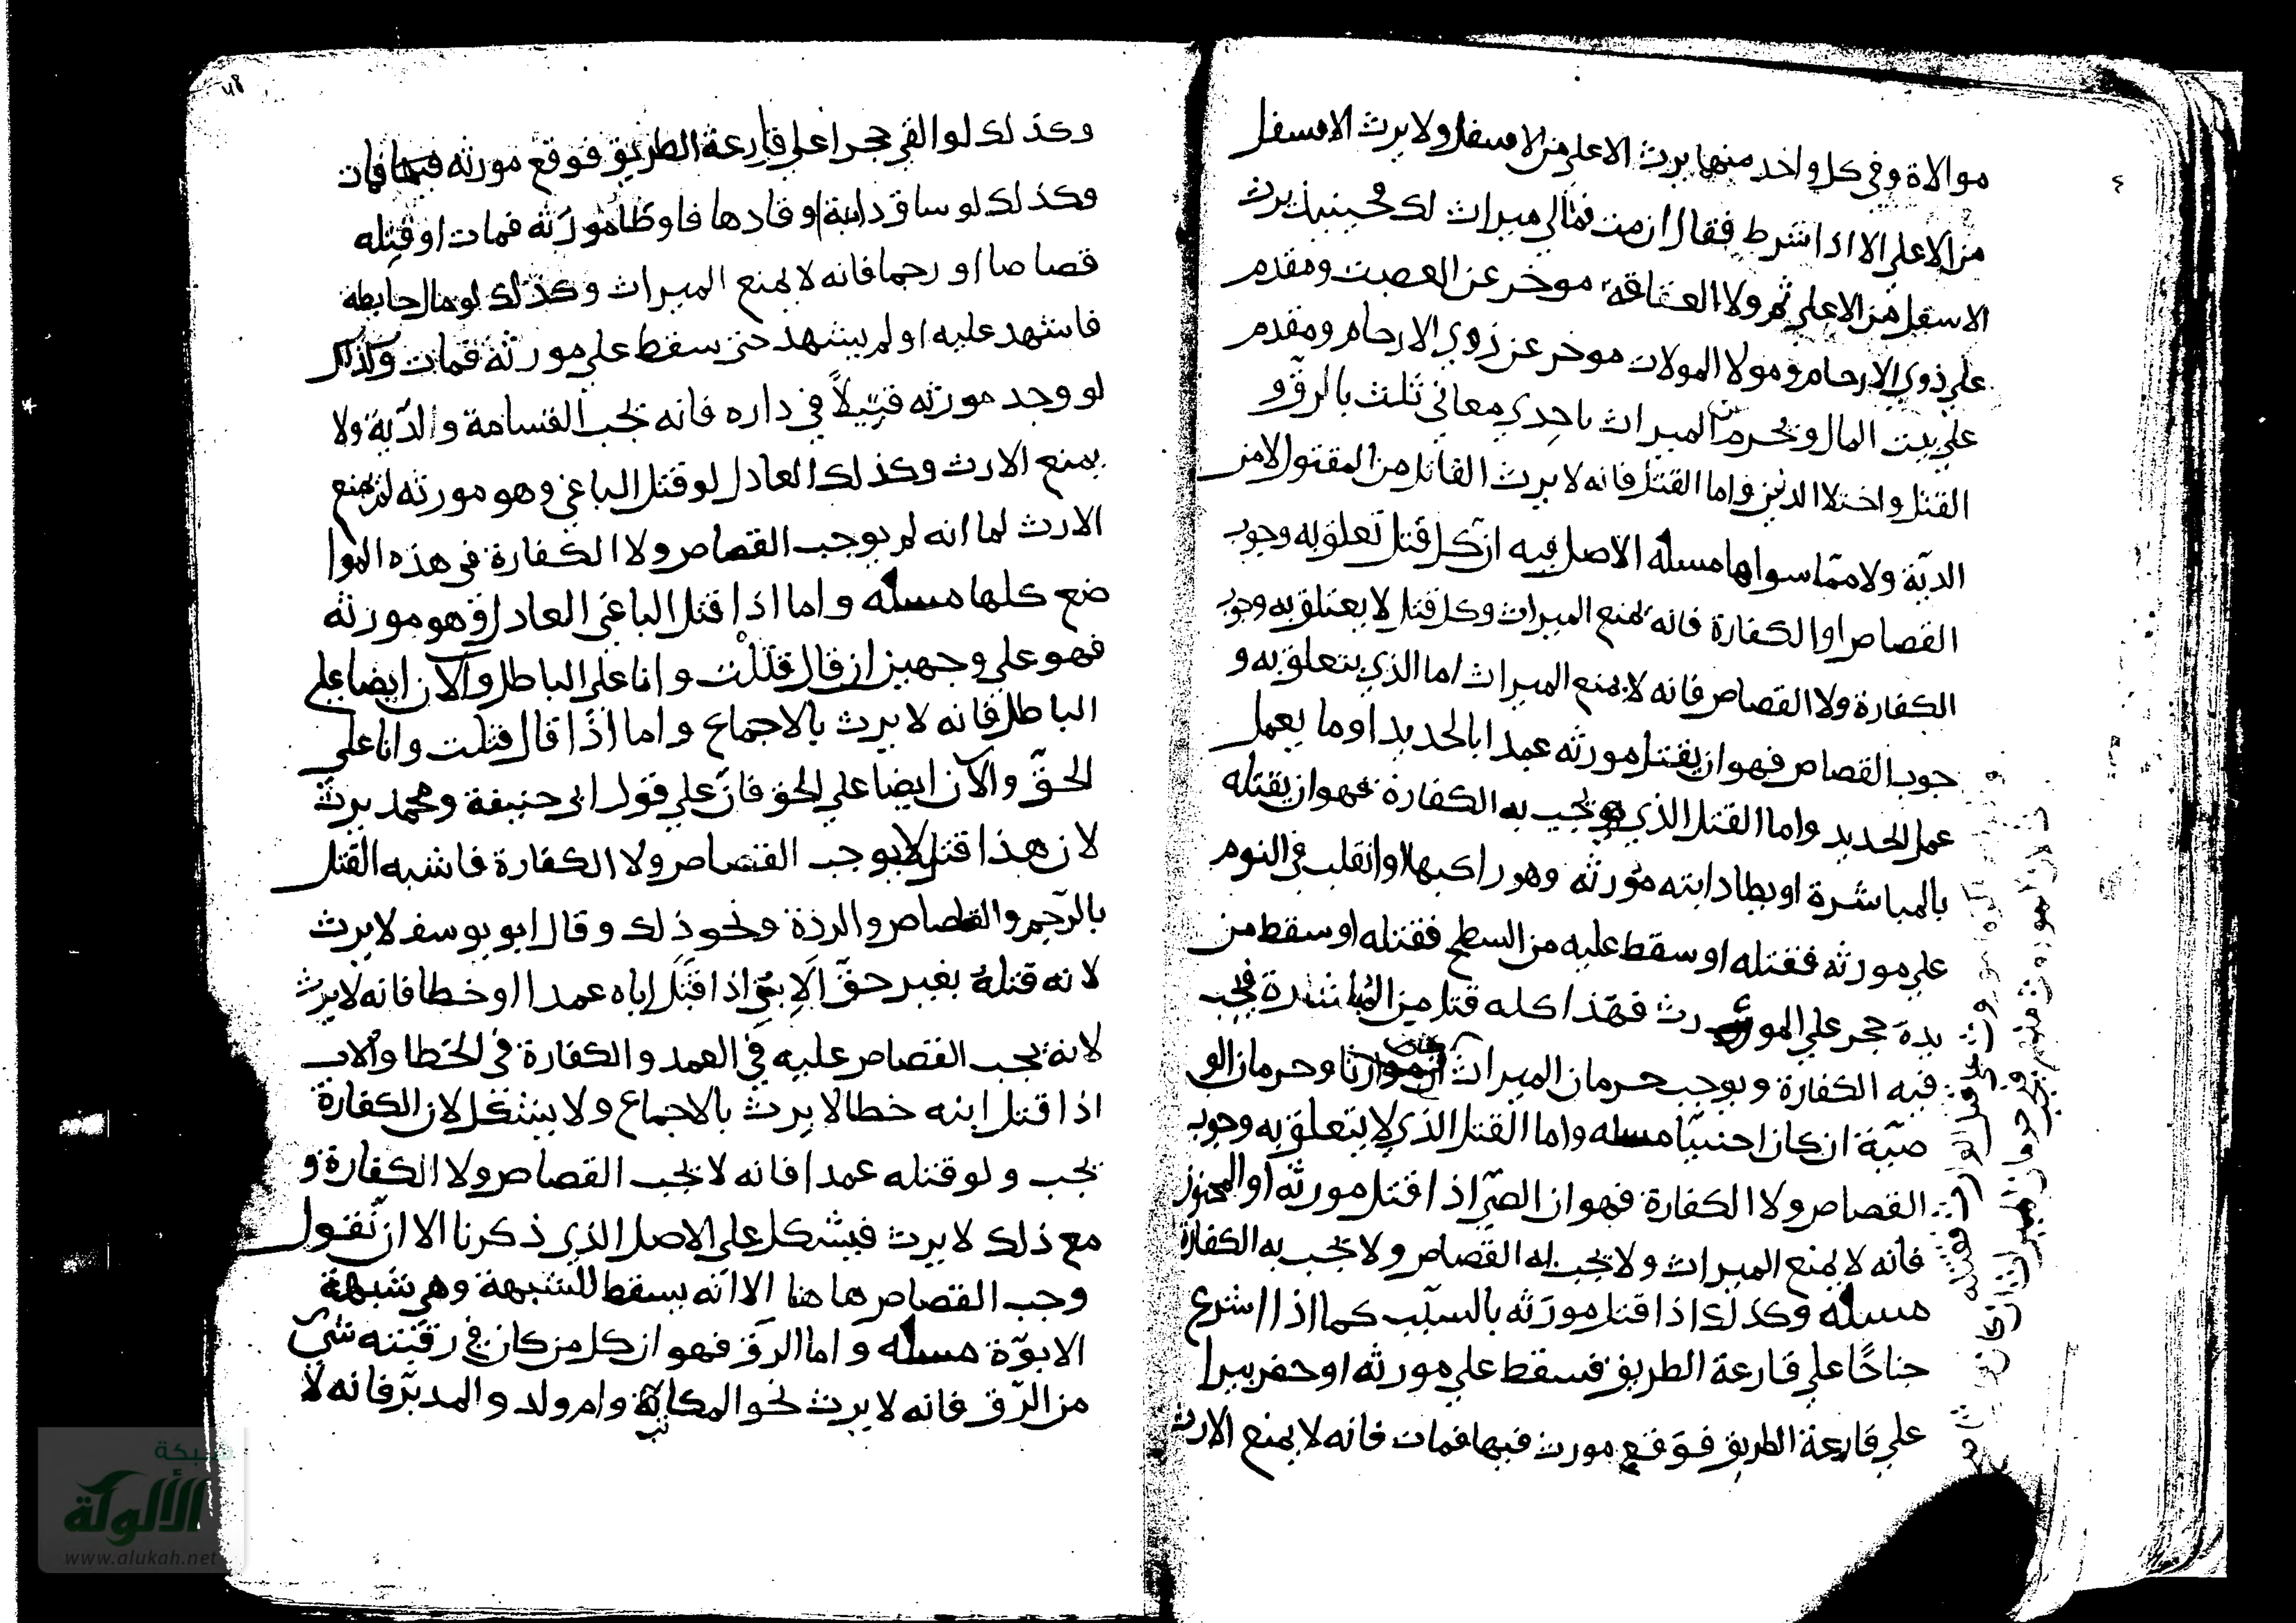 موالاة وفي كل واحد منهما يرث الاعلي من الاسفل ولا يرث الاسفل
من الاعلي الا اذا شرط فقال ان مت فمالي ميراث لك فحينيذ يرث
الاسفل من الاعلي ثم ولا العتاقة موخر عن العصبت ومقدم
علي ذوي الارحام ومولا المولات موخر عن ذوي الارحام ومقدم
علي بيت المال ويحرم من الميراث باحدي معاني ثلث بالرق و
القتل واختلا الدين واما القتل فانه لا يرث القاتل من المقتول لا من
الدية ولا مما سواها مسله الاصل فيه ان كل قتل تعلق به وجوب
القصاص او الكفارة فانه يمنع الميراث وكل قتل لا يعتلق به وجوب
الكفارة ولا القصاص فانه لا يمنع الميراث اما الذي يتعلق به و
جوب القصاص فهو ان يقتل مورثه عمدا بالحديد او ما يعمل
عمل الحديد واما القتل الذي يجيب به الكفارة فهو ان يقتله
بالمباشرة او يطا دابته مورثه وهو راكبها او انقلب في النوم
علي مورثه فقتله او سقط عليه من السطح فقتله او سقط من
يده حجر علي المورث فهذا كله قتل من المباشرة فيجب
فيه الكفارة ويوجب حرمان الميراث ان كان وارثا وحرمان الو
صية ان كان اجنبيا مسله واما القتل الذي لا يتعلق به وجوب
القصاص ولا الكفارة فهو ان الصبي اذا قتل مورثه او المجنون
فانه لا يمنع الميراث ولا يجب له القصاص ولا يجب به الكفارة
مسله وكذلك اذا قتل مورثه بالسبب كما اذا اشرع
جناحا علي قارعة الطريق فسقط علي مورثه او حفر بيرا
علي قارعة الطريق فوقع مورث فيها فمات فانه لا يمنع الارث
وكذلك لو القي حجرا علي قارعة الطريق فوقع مورثه فمات
وكذلك لو ساق دابة او قادها فاوطا مورثه فمات او قتله
قصاصا او رجما فانه لا يمنع الميراث وكذلك لو مال حايطه
فاشهد عليه او لم يشهد حتي سقط علي مورثه فمات وكذلك
لو وجد مورثه قتيلا في داره فانه يجب القسامة والدية ولا
يمنع الارث وكذلك العادل لو قتل الباغي وهو مورثه لم يمنع
الارث لما انه لم يوجب القصاص ولا الكفارة في هذه الموا
ضع كلها مسله واما اذا قتل الباغي العادل وهو مورثه
فهو علي وجهين ان قال قتلت وانا علي الباطل والآن ايضا علي
الباطل فانه لا يرث بالاجماع واما اذا قال قتلت وانا علي
الحق والآن ايضا علي الحق فان علي قول ابي حنيفة ومحمد يرث
لان هذا قتل لا يوجب القصاص ولا الكفارة فاشبه القتل
بالرجم والقصاص والردة ونحو ذلك وقال ابو يوسف لا يرث
لانه قتله بغير حق الابن اذا قتل اباه عمدا او خطا فانه لا يرث
لانه يجب القصاص عليه في العمد والكفارة في الخطا والاب
اذا قتل ابنه خطا لا يرث بالاجماع ولا يشكل لان الكفارة
يجب ولو قتله عمدا فانه لا يجب القصاص ولا الكفارة و
مع ذلك لا يرث فيشكل علي الاصل الذي ذكرنا الا ان نقول
وجب القصاص هاهنا الا انه يسقط للشبهة وهي شبهة
الابوة مسله واما الرق فهو ان كل من كان في رقبته شي
من الرق فانه لا يرث نحو المكاتب وام ولد والمدبر فانه لا
شبكة
الألوكة
www.alukah.net